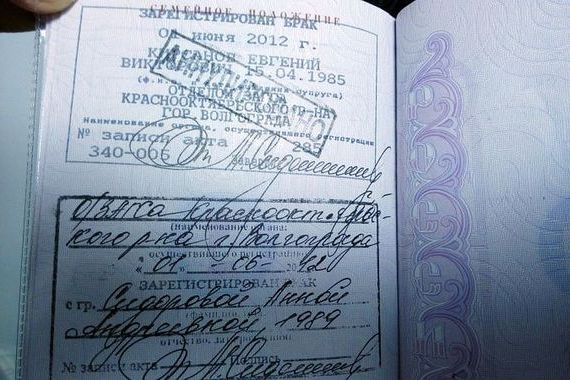 СЕМЕЙНОЕ ПОЛОЖЕНИЕ
ЗАРЕГИСТРИРОВАН БРАК
ИЮНЯ 2012 Г.
ЕВГЕНИЙ
15.04.1985
ОТДЕЛОМ ЗАГСА
КРАСНООКТЯБРЬСКОГО Р-НА
ГОР. ВОЛГОГРАДА
Наименование органа, осуществившего регистрацию
№ записи акта 285
340-006
О/ЗАГСа Краснооктябрьс-
кого р-на г. Волгограда
(наименование органа,
осуществившего регистрацию)
"01" - 06 - 2012
ЗАРЕГИСТРИРОВАН БРАК
с гр. Сидоровой Анной
Андреевной, 1989
отчество, дата рождения
№ записи акта Подпись